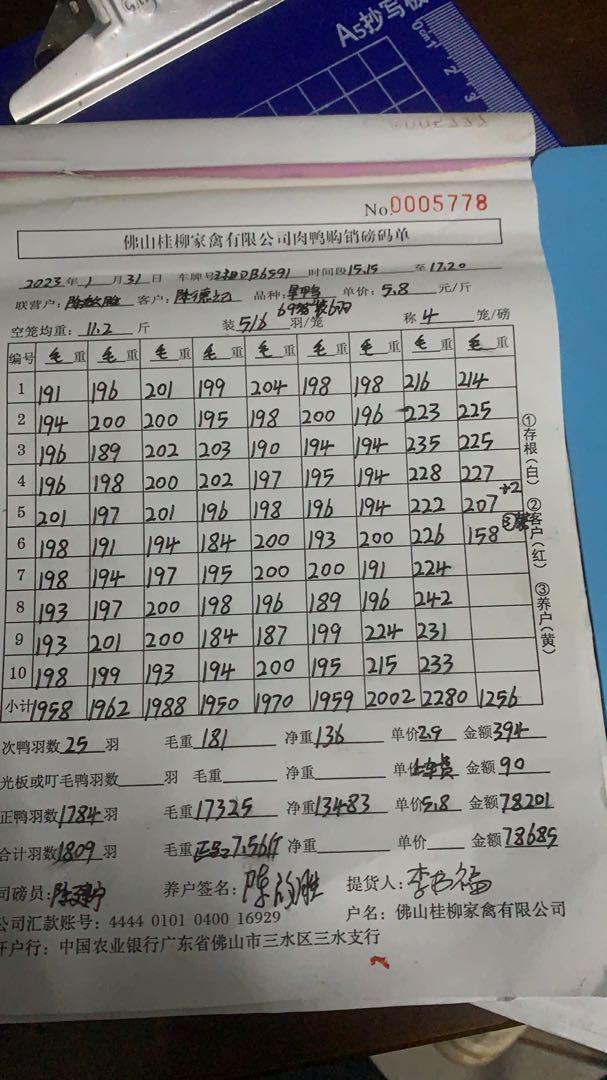 A5抄写板
0cm 1 2 3
No.0005778
佛山桂柳家禽有限公司肉鸭购销磅码单
2023年1月31日 车牌号 时间段15.15至17.20
联营户: 客户:陈德 品种: 单价:5.8元/斤
69
空笼均重:11.2斤 装5/6羽/笼 称4笼/磅
编号 毛重 毛重 毛重 毛重 毛重 毛重 毛重 毛重 毛重
1 191 196 201 199 204 198 198 216 214
2 194 200 200 195 198 200 196 223 225
3 196 189 202 203 190 194 194 235 225
4 196 198 200 202 197 195 194 228 227
5 201 197 201 196 198 196 194 222 207 +2
6 198 191 194 184 200 193 200 226 158
7 198 194 197 195 200 200 191 224
8 193 197 200 198 196 189 196 242
9 193 201 200 184 187 199 224 231
10 198 199 193 194 200 195 215 233
小计 1958 1962 1988 1950 1970 1959 2002 2280 1256
①存根(白) ②客户(红) ③养户(黄)
次鸭羽数25羽 毛重181 净重136 单价2.9 金额394
光板或叮毛鸭羽数 羽 毛重 净重 单价 金额90
正鸭羽数1784羽 毛重17325 净重13483 单价5.8 金额78201
合计羽数1809羽 毛重 7.56斤 净重 单价 金额78685
司磅员: 养户签名:陈 胜 提货人:李 福
公司汇款账号:4444 0101 0400 16929 户名:佛山桂柳家禽有限公司
开户行:中国农业银行广东省佛山市三水区三水支行